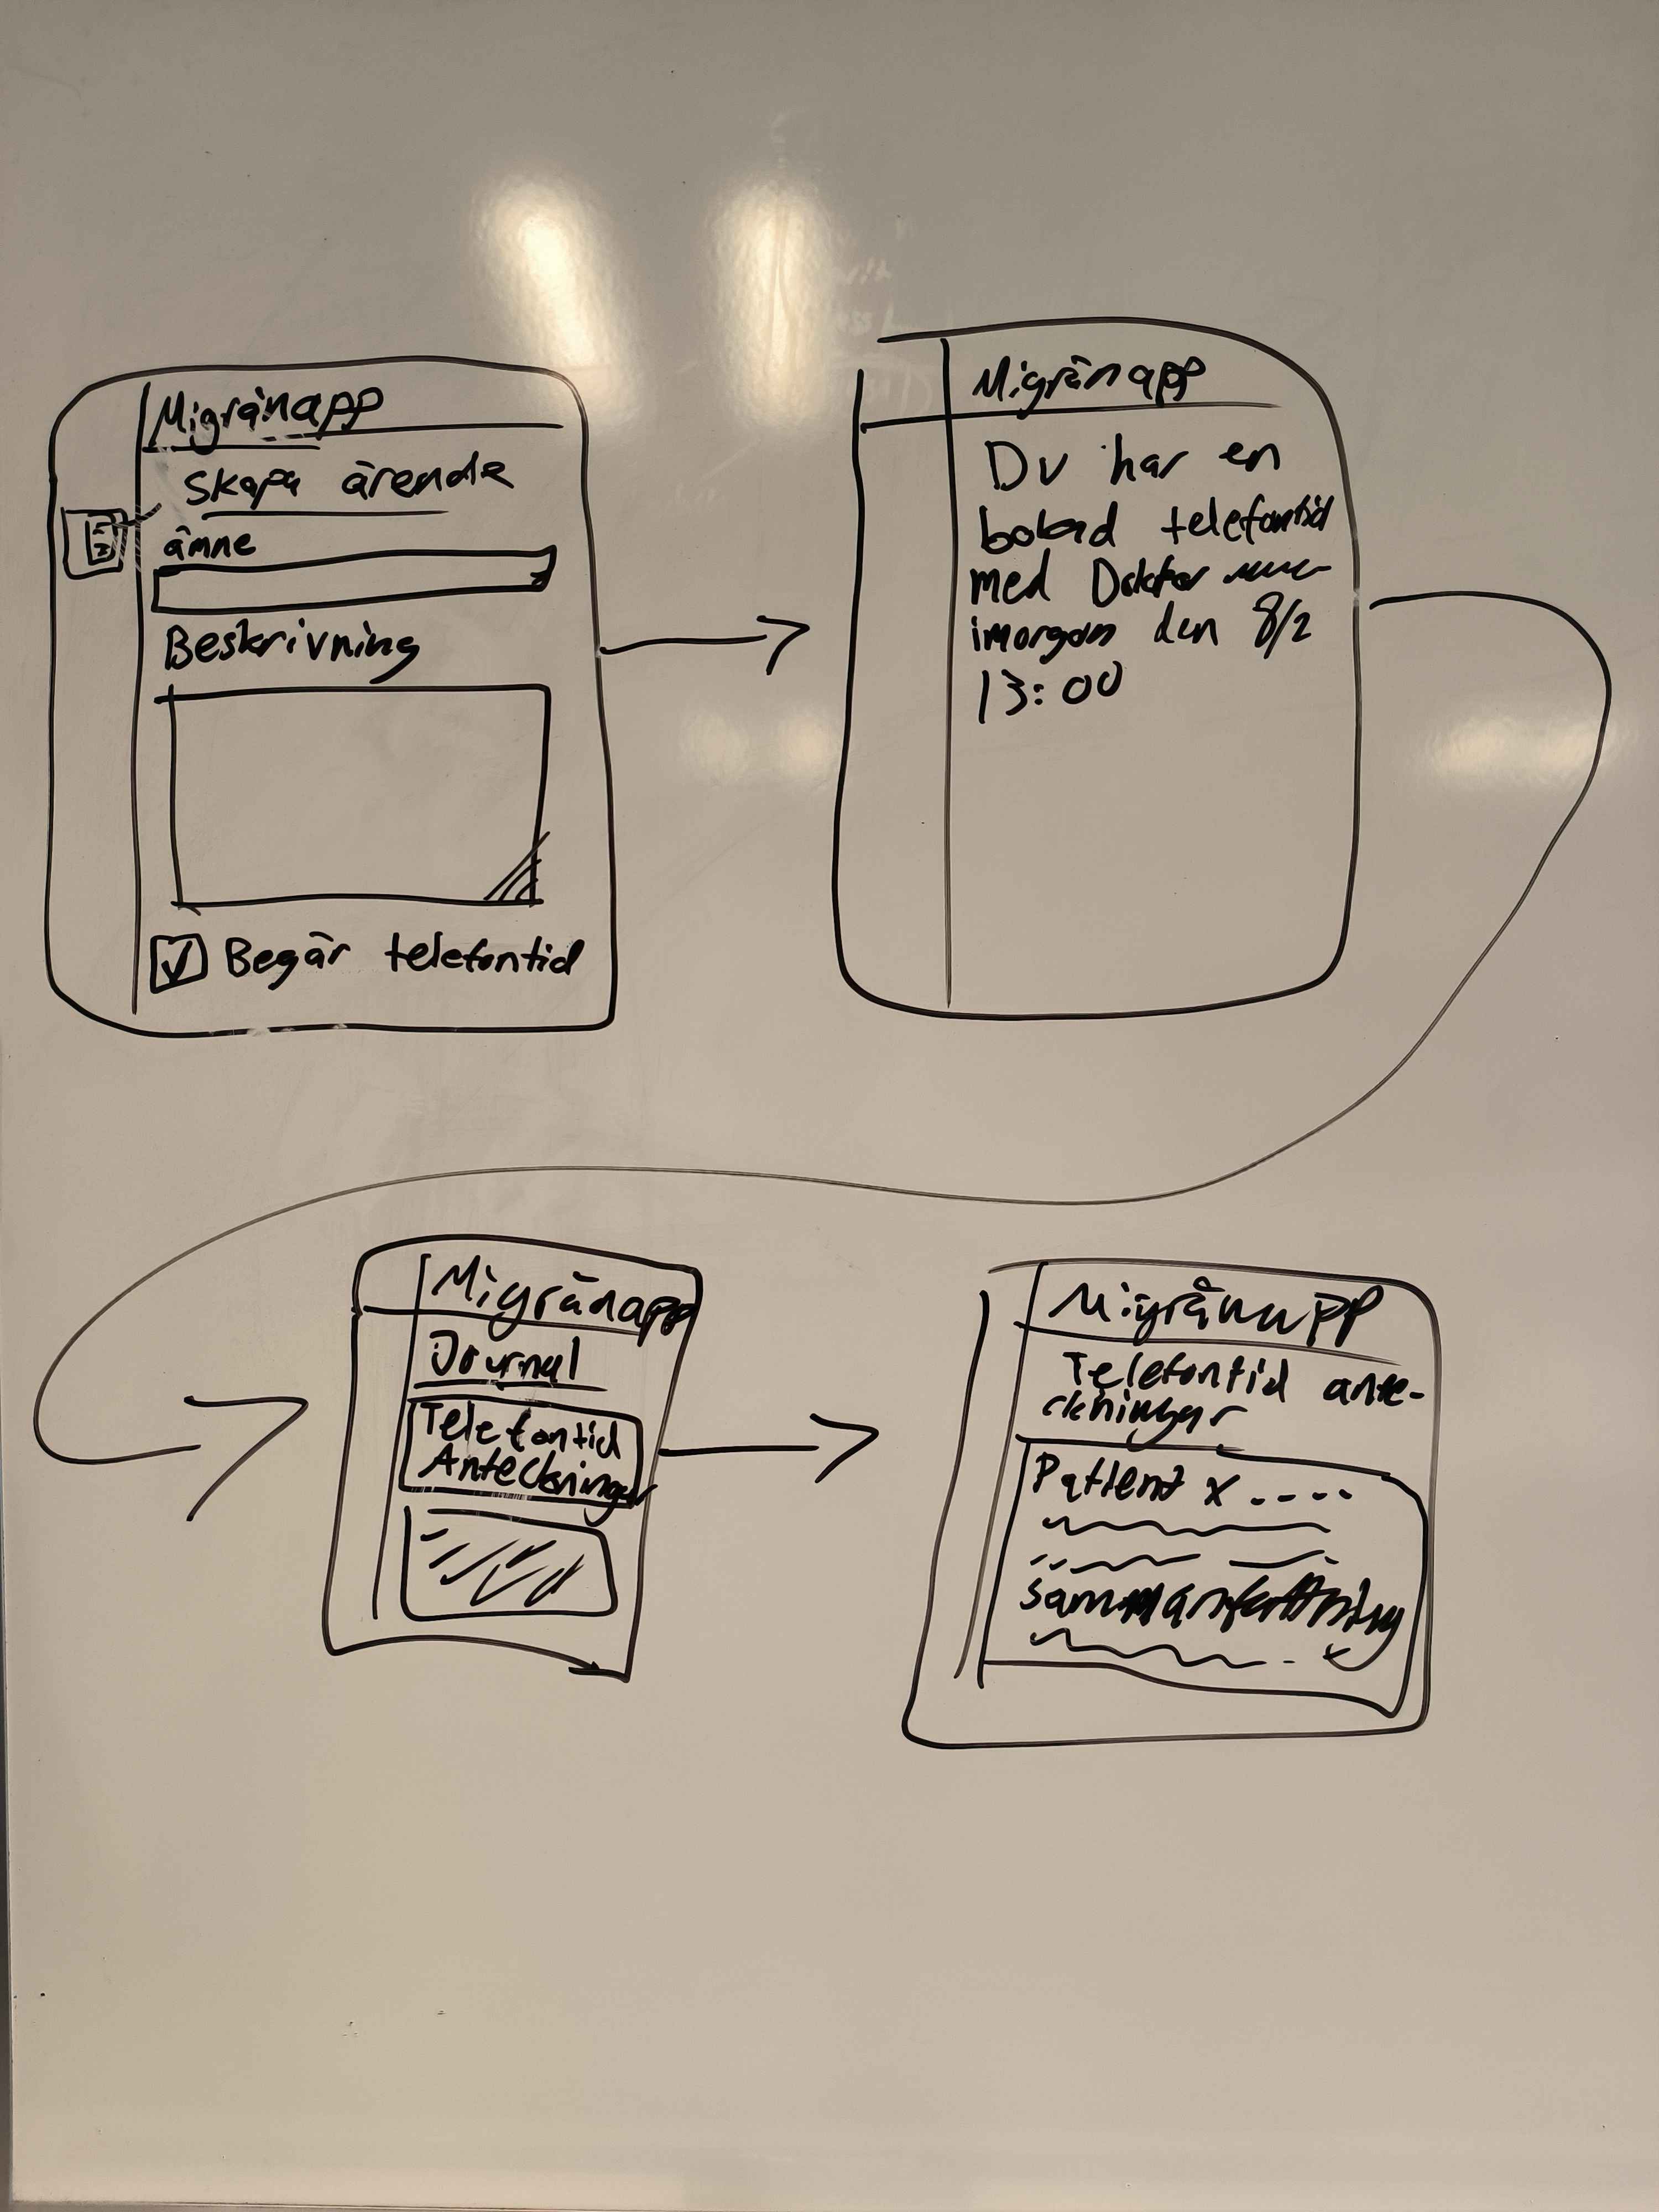 Migränapp
Skapa ärende
ämne
Beskrivning
Begär telefontid
Migränapp
Du har en
bokad telefontid
med Doktor
imorgon den 8/2
13:00
Migränapp
Journal
Telefontid
Anteckningar
Migränapp
Telefontid ante-
ckningar
Patient x ....
sammanfattning